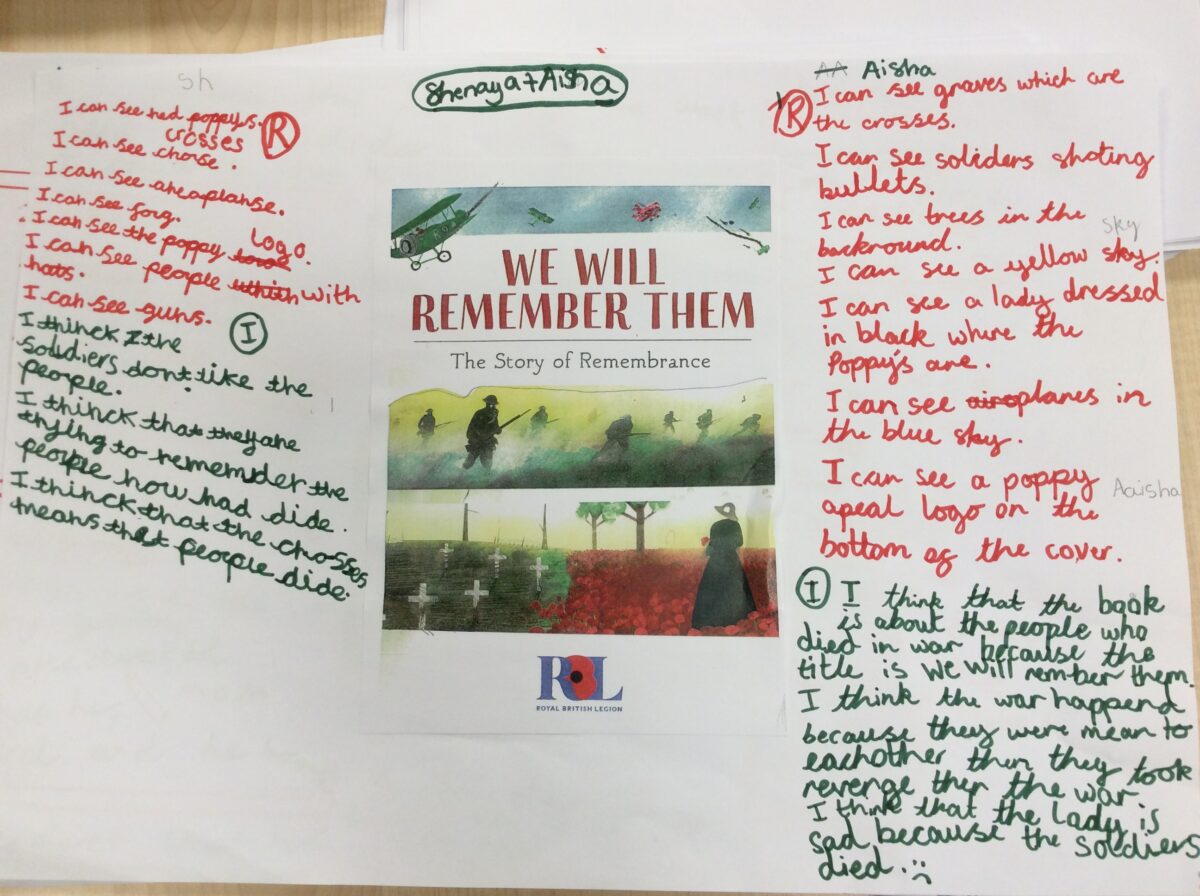 Sh
Shenaya + Aisha
I can see red poppys. R
crosses
I can see chorse.
I can see areaplanse.
I can see forg.
I can see the poppy logo.
I can see people which with
hats.
I can see guns.
I thinck the I
soldiers dont like the
people.
I thinck that they are
trying to remember the
people how had dide.
I thinck that the chosses
means that people dide.
WE WILL
REMEMBER THEM
The Story of Remembrance
RBL
ROYAL BRITISH LEGION
AA Aisha
R I can see graves which are
the crosses.
I can see soliders shoting
bullets.
I can see trees in the
backround.
sky
I can see a yellow sky.
I can see a lady dressed
in black where the
Poppy's are.
I can see airoplanes in
the blue sky.
I can see a poppy
Aaisha
apeal logo on the
bottom of the cover.
I I think that the book
is about the people who
died in war because the
title is We Will rember them.
I think the war happend
because they were mean to
eachother then they took
revenge then the war.
I think that the lady is
sad because the soldiers
died.